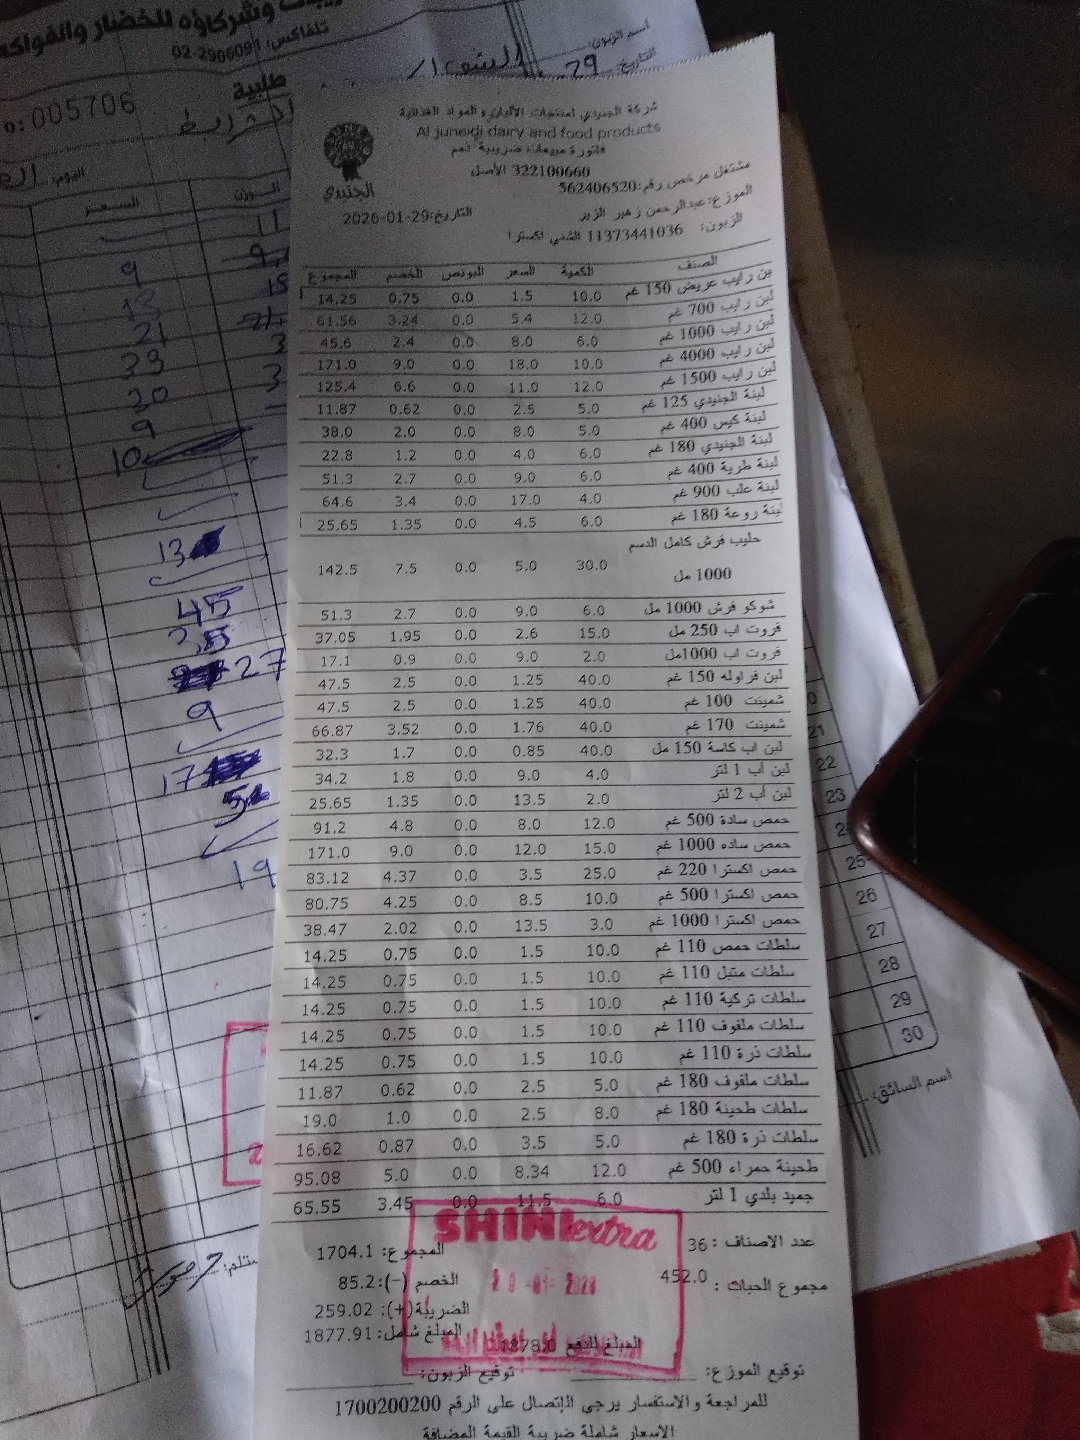 وشركاؤه للخضار والفواكه
تلفاكس: 02-2906091
طلبية
005706
اسم الزبون:
التاريخ: 29
اليوم:
الوزن السعر
9
13
21
23
20
9
10
13
45
27
9
17
19
شركة الجنيدي لمنتجات الألبان والمواد الغذائية
Al juneidi dairy and food products
فاتورة مبيعات ضريبية ذمم
322100660 الأصل
الجنيدي
مشتغل مرخص رقم:562406520
الموزع:عبدالرحمن زهير الزير
التاريخ:29-01-2026
الزبون: 11373441036 الشني اكسترا
الصنف الكمية السعر البونص الخصم المجموع
لبن رايب عريض 150 غم 10.0 1.5 0.0 0.75 14.25
لبن رايب 700 غم 12.0 5.4 0.0 3.24 61.56
لبن رايب 1000 غم 6.0 8.0 0.0 2.4 45.6
لبن رايب 4000 غم 10.0 18.0 0.0 9.0 171.0
لبن رايب 1500 غم 12.0 11.0 0.0 6.6 125.4
لبنة الجنيدي 125 غم 5.0 2.5 0.0 0.62 11.87
لبنة كيس 400 غم 5.0 8.0 0.0 2.0 38.0
لبنة الجنيدي 180 غم 6.0 4.0 0.0 1.2 22.8
لبنة طرية 400 غم 6.0 9.0 0.0 2.7 51.3
لبنة علب 900 غم 4.0 17.0 0.0 3.4 64.6
لبنة روعة 180 غم 6.0 4.5 0.0 1.35 25.65
حليب فرش كامل الدسم
1000 مل 30.0 5.0 0.0 7.5 142.5
شوكو فرش 1000 مل 6.0 9.0 0.0 2.7 51.3
فروت اب 250 مل 15.0 2.6 0.0 1.95 37.05
فروت اب 1000مل 2.0 9.0 0.0 0.9 17.1
لبن فراوله 150 غم 40.0 1.25 0.0 2.5 47.5
شمينت 100 غم 40.0 1.25 0.0 2.5 47.5
شمينت 170 غم 40.0 1.76 0.0 3.52 66.87
لبن اب كاسة 150 مل 40.0 0.85 0.0 1.7 32.3
لبن اب 1 لتر 4.0 9.0 0.0 1.8 34.2
لبن أب 2 لتر 2.0 13.5 0.0 1.35 25.65
حمص سادة 500 غم 12.0 8.0 0.0 4.8 91.2
حمص ساده 1000 غم 15.0 12.0 0.0 9.0 171.0
حمص اكسترا 220 غم 25.0 3.5 0.0 4.37 83.12
حمص اكسترا 500 غم 10.0 8.5 0.0 4.25 80.75
حمص اكسترا 1000 غم 3.0 13.5 0.0 2.02 38.47
سلطات حمص 110 غم 10.0 1.5 0.0 0.75 14.25
سلطات متبل 110 غم 10.0 1.5 0.0 0.75 14.25
سلطات تركية 110 غم 10.0 1.5 0.0 0.75 14.25
سلطات ملفوف 110 غم 10.0 1.5 0.0 0.75 14.25
سلطات ذرة 110 غم 10.0 1.5 0.0 0.75 14.25
سلطات ملفوف 180 غم 5.0 2.5 0.0 0.62 11.87
سلطات طحينة 180 غم 8.0 2.5 0.0 1.0 19.0
سلطات ذرة 180 غم 5.0 3.5 0.0 0.87 16.62
طحينة حمراء 500 غم 12.0 8.34 0.0 5.0 95.08
جميد بلدي 1 لتر 6.0 11.5 0.0 3.45 65.55
SHINI extra
عدد الاصناف : 36
المجموع: 1704.1
مجموع الحبات : 452.0
الخصم (-):85.2
الضريبة(+): 259.02
المبلغ شامل: 1877.91
المبلغ للدفع 1878.0
توقيع الموزع: توقيع الزبون:
للمراجعة والاستفسار يرجى الإتصال على الرقم 1700200200
الاسعار شاملة ضريبة القيمة المضافة
21
22
23
25
26
27
28
29
30
اسم السائق: